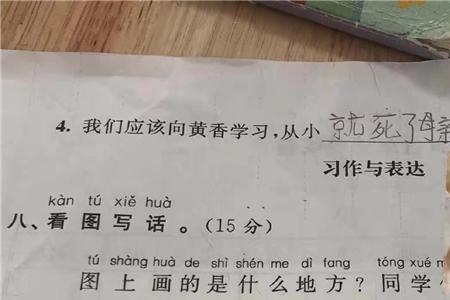 4. 我们应该向黄香学习，从小就死了母亲
习作与表达
kàn tú xiě huà
八、看图写话。（15分）
tú shàng huà de shì shén me dì fang tóng xué
图上画的是什么地方？同学